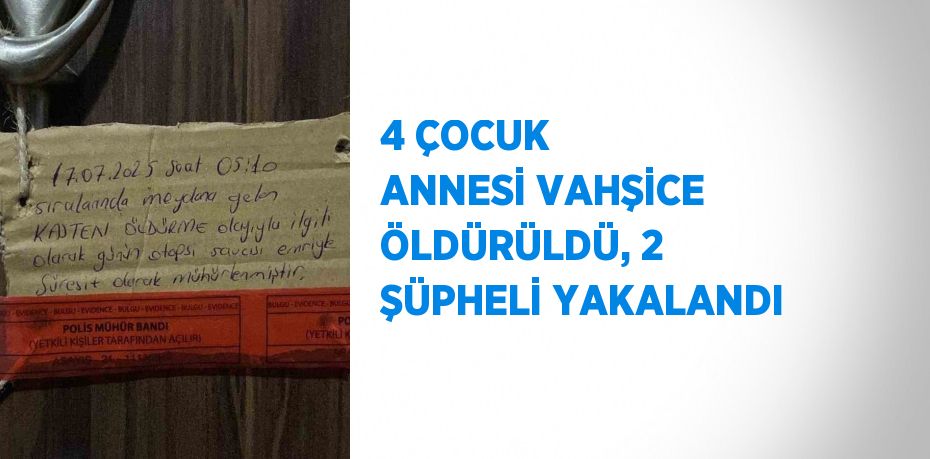 17.07.2025 Saat 05:10
sıralarında meydana gelen
KASTEN ÖLDÜRME olayıyla ilgili
olarak günün otopsi savcısı emriyle
Süresit olarak mühürlenmiştir.
BULGU - EVIDENCE - BULGU - EVIDENCE - BULGU - EVIDENCE - BULGU - EVIDENCE
POLİS MÜHÜR BANDI
(YETKİLİ KİŞİLER TARAFINDAN AÇILIR)
PO
(YETKİLİ K
4 ÇOCUK
ANNESİ VAHŞİCE
ÖLDÜRÜLDÜ, 2
ŞÜPHELİ YAKALANDI